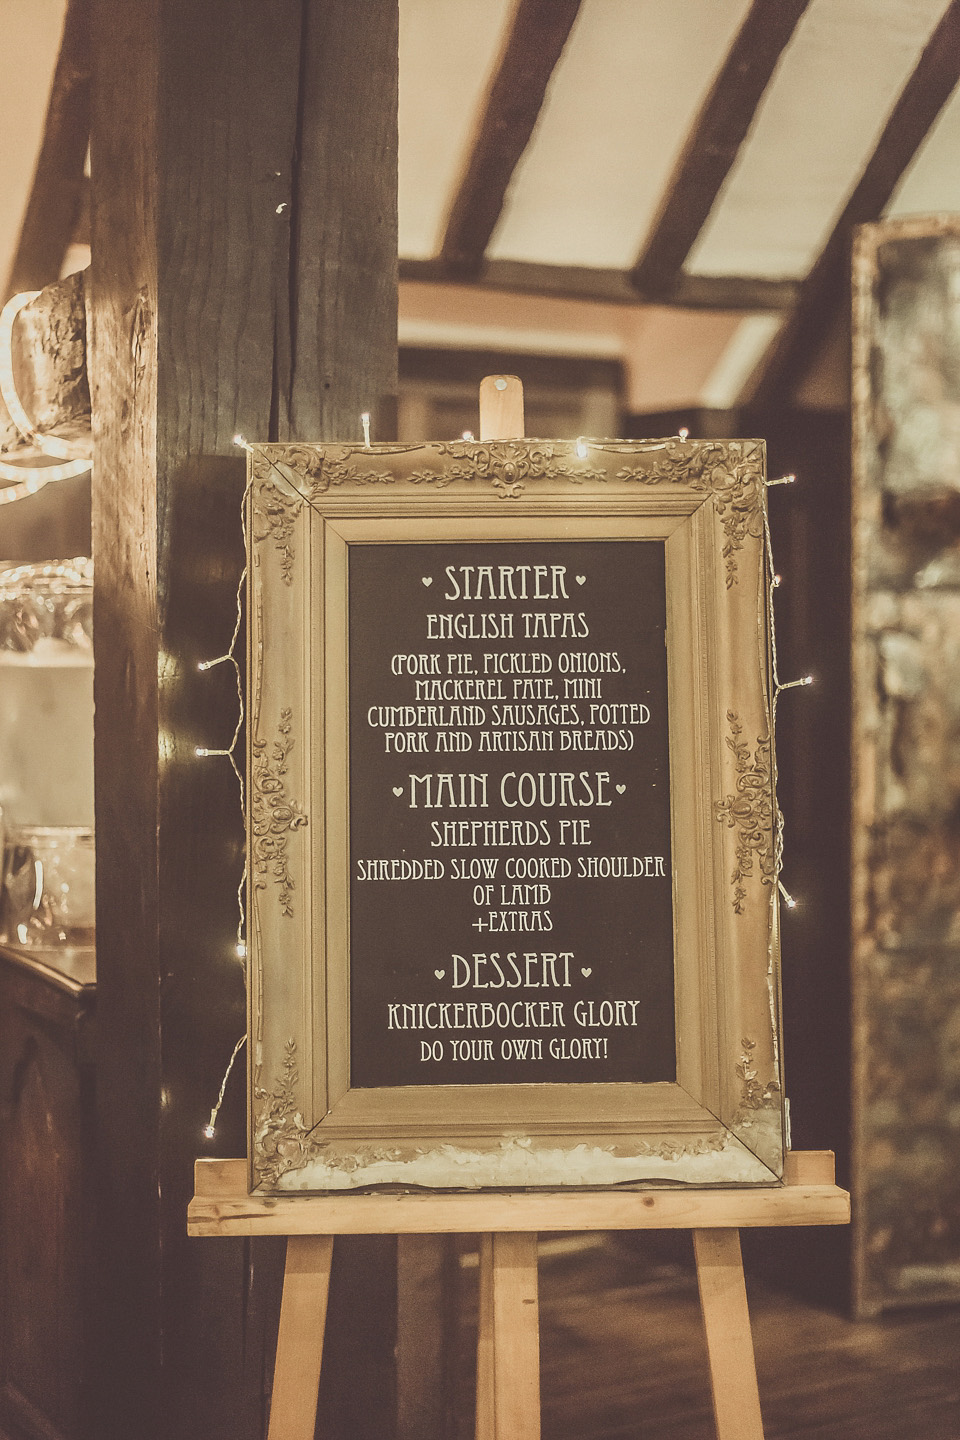 ♥ STARTER ♥
ENGLISH TAPAS
(PORK PIE, PICKLED ONIONS,
MACKEREL PATE, MINI
CUMBERLAND SAUSAGES, POTTED
PORK AND ARTISAN BREADS)
♥ MAIN COURSE ♥
SHEPHERDS PIE
SHREDDED SLOW COOKED SHOULDER
OF LAMB
+EXTRAS
♥ DESSERT ♥
KNICKERBOCKER GLORY
DO YOUR OWN GLORY!